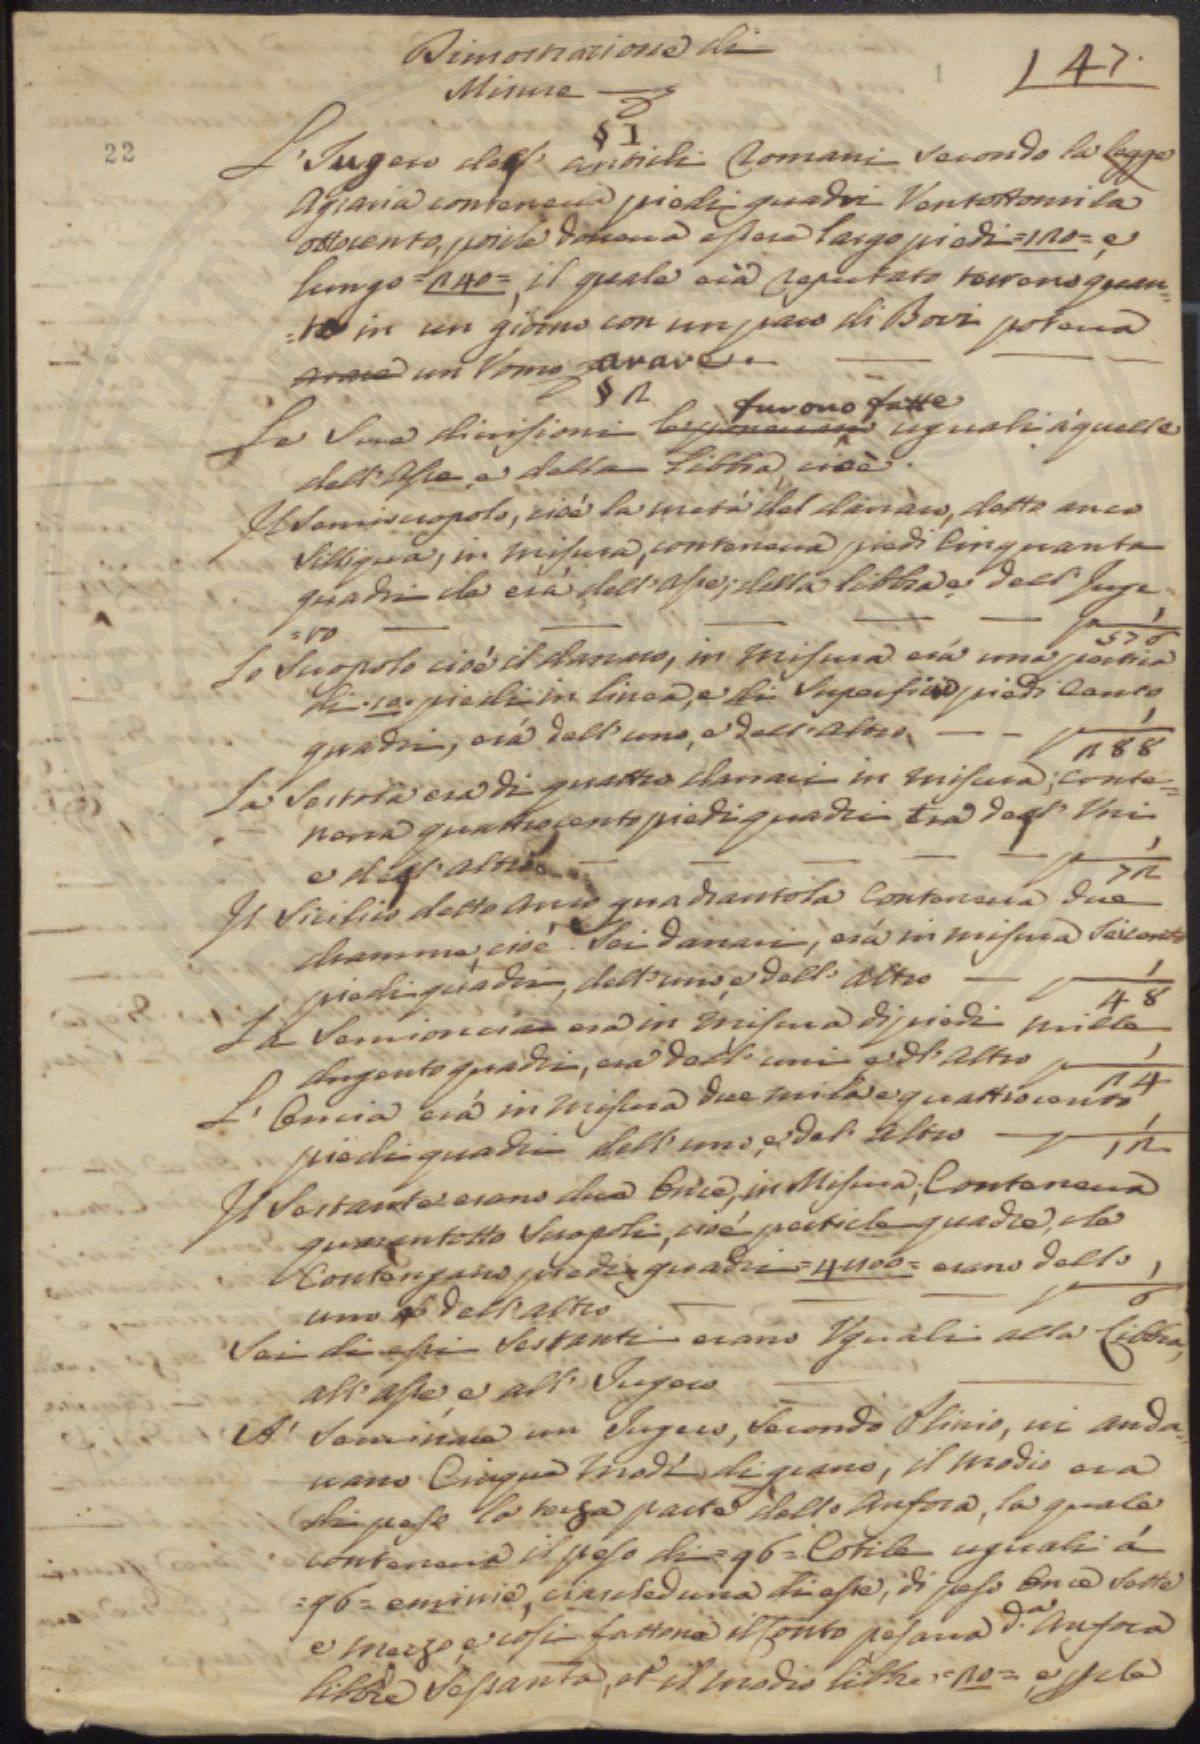 Dimostrazione di
Misure
147.
22
§ 1
L'Jugero degl' antichi Romani secondo la legge
Agraria conteneva piedi quadri Ventottomila
ottocento, poiche doveva essere largo piedi =120= e
lungo =240=, il quale erà reputato terreno quan-
=to in un giorno con un paro di Bovi poteva
arare un Vomo arare.
§ 2
furono fatte
Le sue divisioni uguali à quelle
dell'Asse, e della Libbra, cioè.
Il Semiscropolo, cioé la metà del danaro, detto anco
Silliqua, in misura, conteneva piedi Cinquanta
quadri che erà dell'Asse, della libbra e dell'Juge-
=ro — 1/576
Lo Scropolo cioé il danaro, in misura erà una pertica
di .10. piedi in linea, e di Superficie piedi Cento
quadri, erà dell'uno, e dell'altro — 1/288
La Sestola era di quattro danari in misura, conte-
neva quattrocento piedi quadri Erà degl' Uni
e degl' altri — 1/72
Il Sicilico detto anco quadrantola conteneva due
dramme, cioé Sei danari, erà in misura Seicento
piedi quadri, dell'uno, e dell' altro — 1/48
La Semioncia erà in misura di piedi mille
dugento quadri, erà dell' uni e dl' altro 1/24
L' Oncia erà in misura due mila e quattrocento
piedi quadri dell'uno, e del' altro — 1/12
Il Sestante erano due Once, in Misura, Conteneva
quarantotto Scropoli, cioé pertiche quadre, che
Contengano piedi quadri =4800= erano dello
uno e dell'altro — 1/6
Sei di essi Sestanti erano Uguali alla Libbra,
all'asse, e all' Jugero
A' Seminare un Jugero, secondo Plinio, vi anda-
vano Cinque modi di grano, il modio era
di peso la terza parte dello Anfora, la quale
conteneva il peso di =96= Cotile uguali á
=96= emine, ciascheduna di esse, di peso Once sette
e mezzo, e cosi il Tutto pesava d.a Anfora
libbre Sessanta, et il modio libbre =20= e